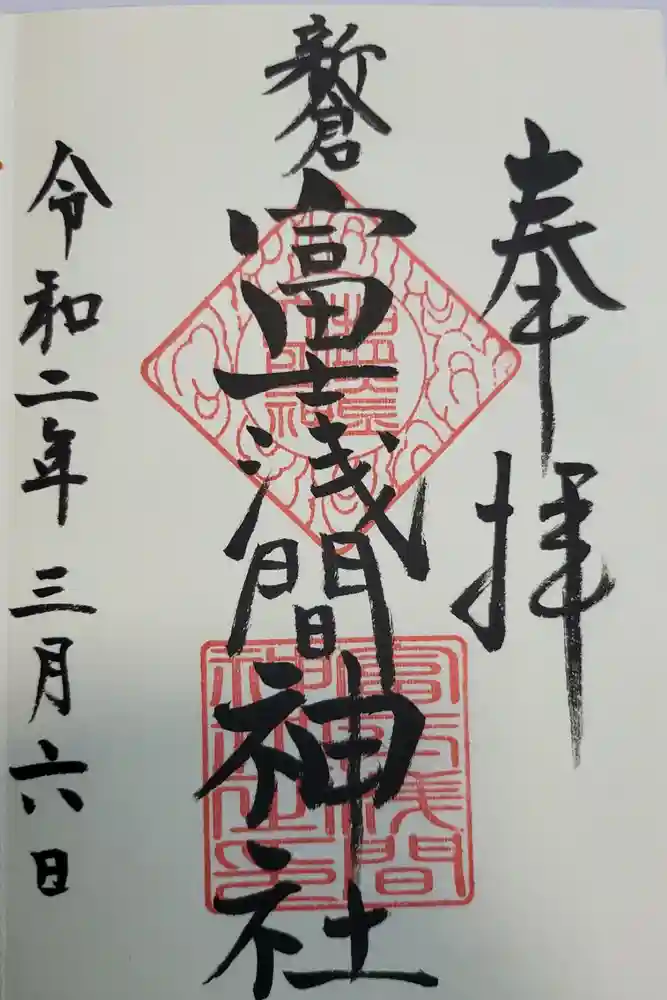 奉拝
新倉
富士浅間神社
令和二年三月六日